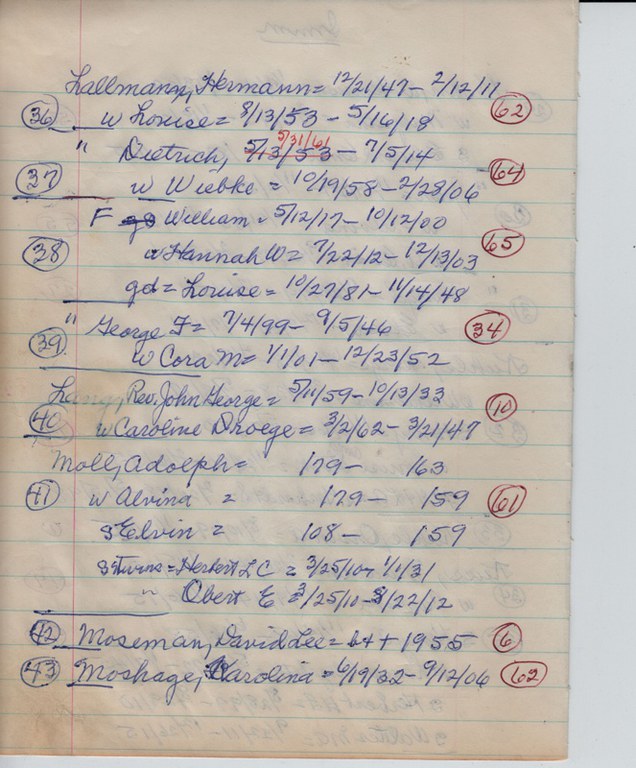 Lallmann, Hermann = 12/21/47 - 2/12/11
36 w Louise = 8/13/53 - 5/16/18 62
" Dietrich, 5/13/53 5/31/61 - 7/5/14
37 w Wiebke = 10/19/58 - 2/28/06 64
F William = 5/12/17 - 10/12/00
38 w Hannah W = 7/22/12 - 12/13/03 65
gd = Louise = 10/27/81 - 11/14/48
" George F = 7/4/99 - 9/5/46 34
39 w Cora M = 1/1/01 - 12/23/52
Lang, Rev. John George = 5/11/59 - 10/13/33 10
40 w Caroline Droege = 3/2/62 - 3/21/47
Moll, Adolph = 179 - 163
41 w Alvina = 179 - 159 61
s Elvin = 108 - 159
s Twins = Herbert L C = 3/25/10 - 1/1/31
" Obert E = 3/25/10 - 8/22/12
42 Moseman, David Lee = b + + 1955 6
43 Moshage, Karolina = 6/19/32 - 9/12/06 62